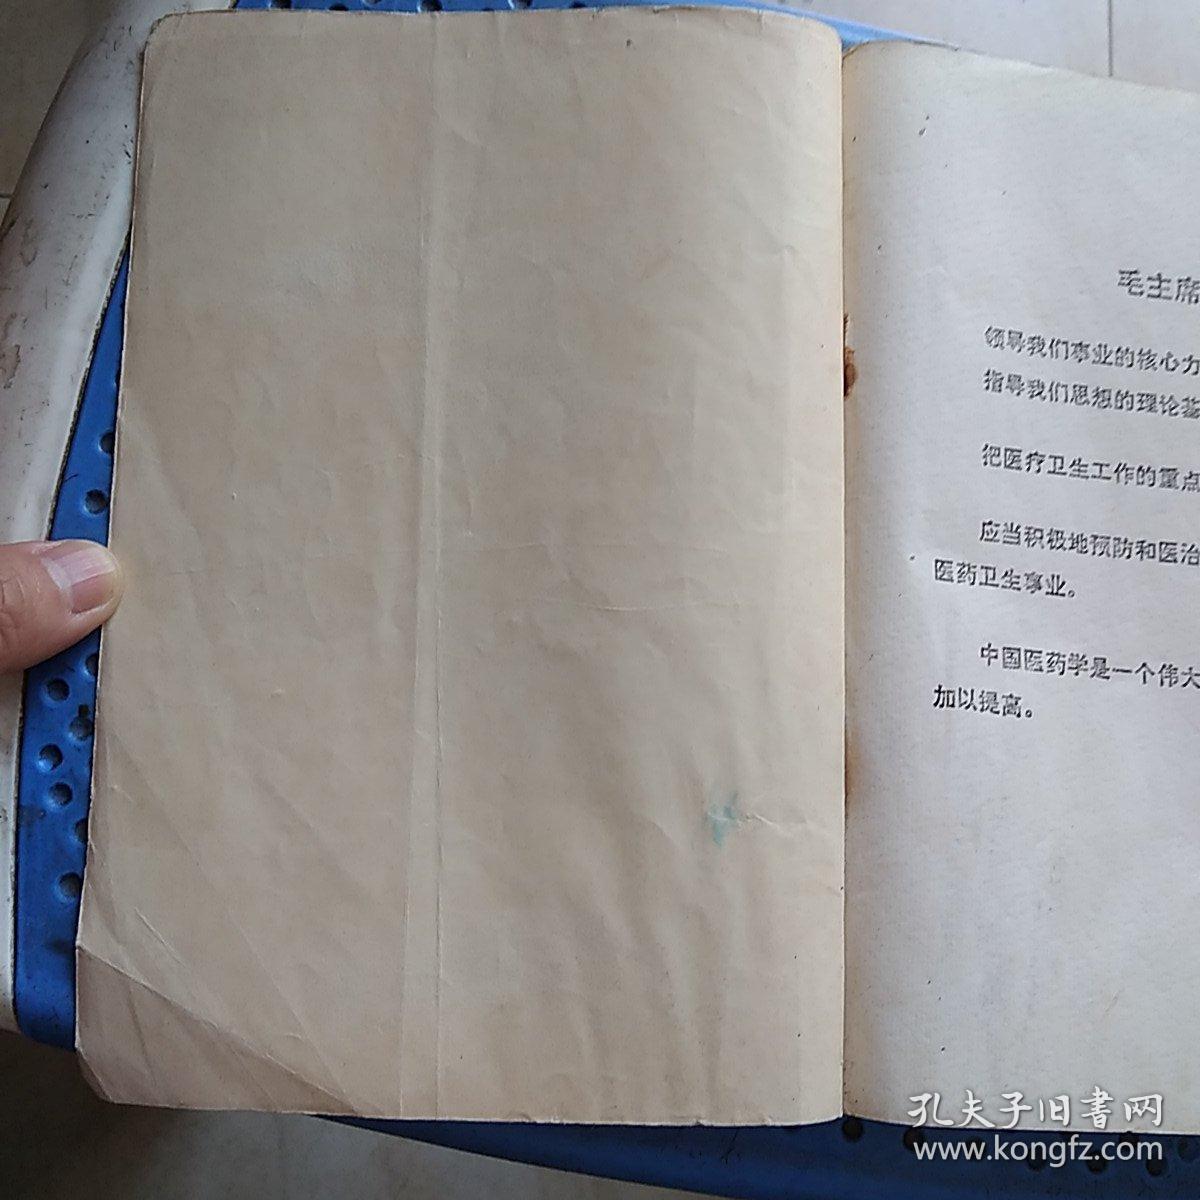 毛主席
领导我们事业的核心力
指导我们思想的理论基
把医疗卫生工作的重点
应当积极地预防和医治
医药卫生事业。
中国医药学是一个伟大
加以提高。
孔夫子旧書网
www.kongfz.com